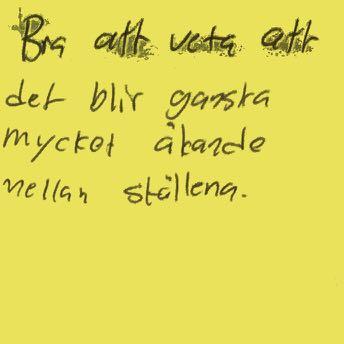 Bra att veta att
det blir ganska
mycket åkande
mellan ställena.